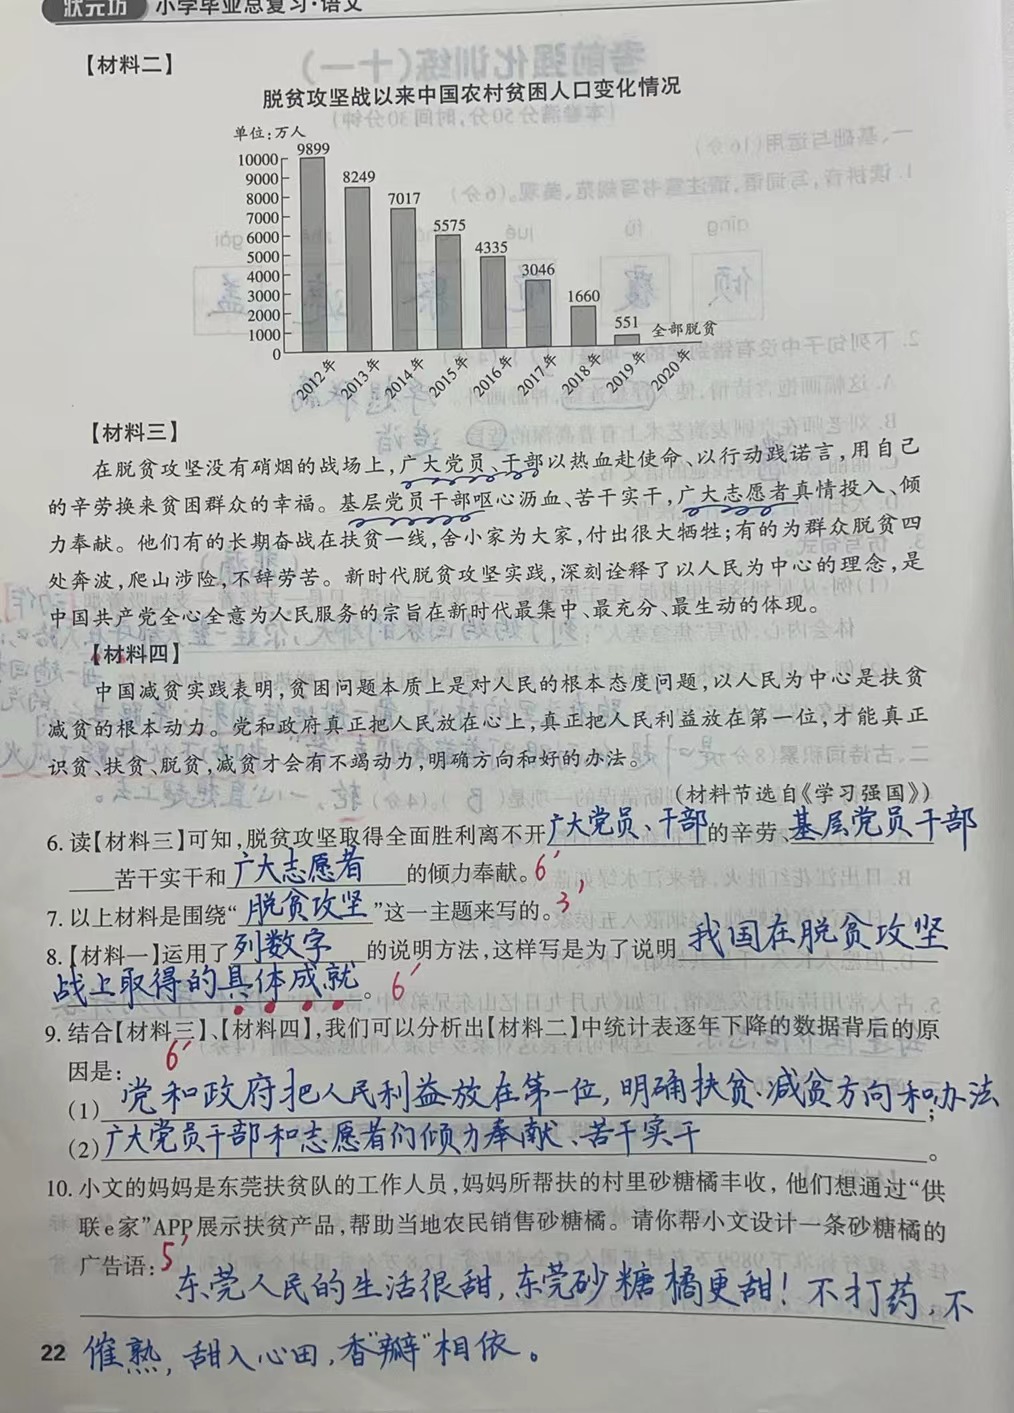 状元坊 小学毕业总复习·语文
【材料二】
脱贫攻坚战以来中国农村贫困人口变化情况
单位:万人
10000
9000
8000
7000
6000
5000
4000
3000
2000
1000
0
9899
8249
7017
5575
4335
3046
1660
551
全部脱贫
2012年
2013年
2014年
2015年
2016年
2017年
2018年
2019年
2020年
【材料三】
在脱贫攻坚没有硝烟的战场上,广大党员、干部以热血赴使命、以行动践诺言,用自己
的辛劳换来贫困群众的幸福。基层党员干部呕心沥血、苦干实干,广大志愿者真情投入、倾
力奉献。他们有的长期奋战在扶贫一线,舍小家为大家,付出很大牺牲;有的为群众脱贫四
处奔波,爬山涉险,不辞劳苦。新时代脱贫攻坚实践,深刻诠释了以人民为中心的理念,是
中国共产党全心全意为人民服务的宗旨在新时代最集中、最充分、最生动的体现。
【材料四】
中国减贫实践表明,贫困问题本质上是对人民的根本态度问题,以人民为中心是扶贫
减贫的根本动力。党和政府真正把人民放在心上,真正把人民利益放在第一位,才能真正
识贫、扶贫、脱贫,减贫才会有不竭动力,明确方向和好的办法。
(材料节选自《学习强国》)
6.读【材料三】可知,脱贫攻坚取得全面胜利离不开广大党员、干部的辛劳、基层党员干部
苦干实干和广大志愿者的倾力奉献。6′
7.以上材料是围绕“脱贫攻坚”这一主题来写的。3′
8.【材料一】运用了列数字的说明方法,这样写是为了说明我国在脱贫攻坚
战上取得的具体成就。6′
9.结合【材料三】、【材料四】,我们可以分析出【材料二】中统计表逐年下降的数据背后的原
因是:6′
(1)党和政府把人民利益放在第一位,明确扶贫、减贫方向和办法;
(2)广大党员干部和志愿者们倾力奉献、苦干实干。
10.小文的妈妈是东莞扶贫队的工作人员,妈妈所帮扶的村里砂糖橘丰收,他们想通过“供
联e家”APP展示扶贫产品,帮助当地农民销售砂糖橘。请你帮小文设计一条砂糖橘的
广告语:5′
东莞人民的生活很甜,东莞砂糖橘更甜!不打药,不
22 催熟,甜入心田,香“瓣”相依。